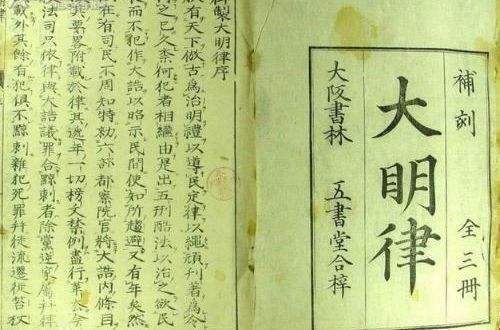 補刻
大明律
全三冊
大阪書林 五書堂合梓
御製大明律序
有天下倣古爲治明禮以導民定律以繩頑刊著爲令
之已久奈何犯者相繼由是出五刑酷法以治之欲民
而不犯作大誥以昭示民間使知所趨避又有年矣然
在有司民不周知特勑六部都察院官將大誥內條目
其要畧附載於律其遞年一切榜文禁例盡行革去今
法司只依律與大誥議罪合黥刺者除黨逆家屬幷律
載外其餘有犯俱不黥刺雜犯死罪幷徒流遷徙笞杖